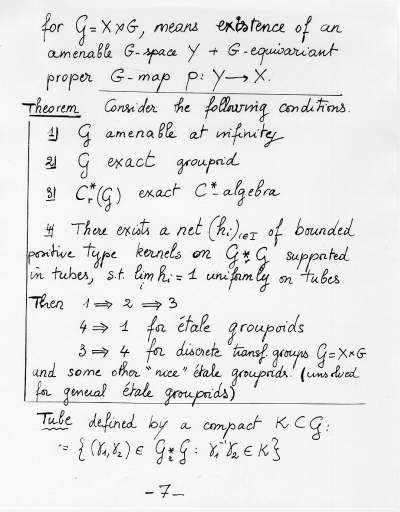 for G = X⋊G, means existence of an
amenable G-space Y + G-equivariant
proper G-map p: Y → X.
Theorem Consider the following conditions.
1) G amenable at infinity
2) G exact groupoid
3) C*r(G) exact C*-algebra
4) There exists a net (hi)i∈I of bounded
positive type kernels on G *r G supported
in tubes, s.t. lim i hi = 1 uniformly on tubes
Then 1 ⇒ 2 ⇒ 3
4 ⇒ 1 for étale groupoids
3 ⇒ 4 for discrete transf. groups G = X⋊G
and some other "nice" étale groupoids. (unsolved
for general étale groupoids)
Tube defined by a compact K ⊂ G:
:= {(γ1,γ2) ∈ G *r G : γ1⁻¹γ2 ∈ K}
-7-